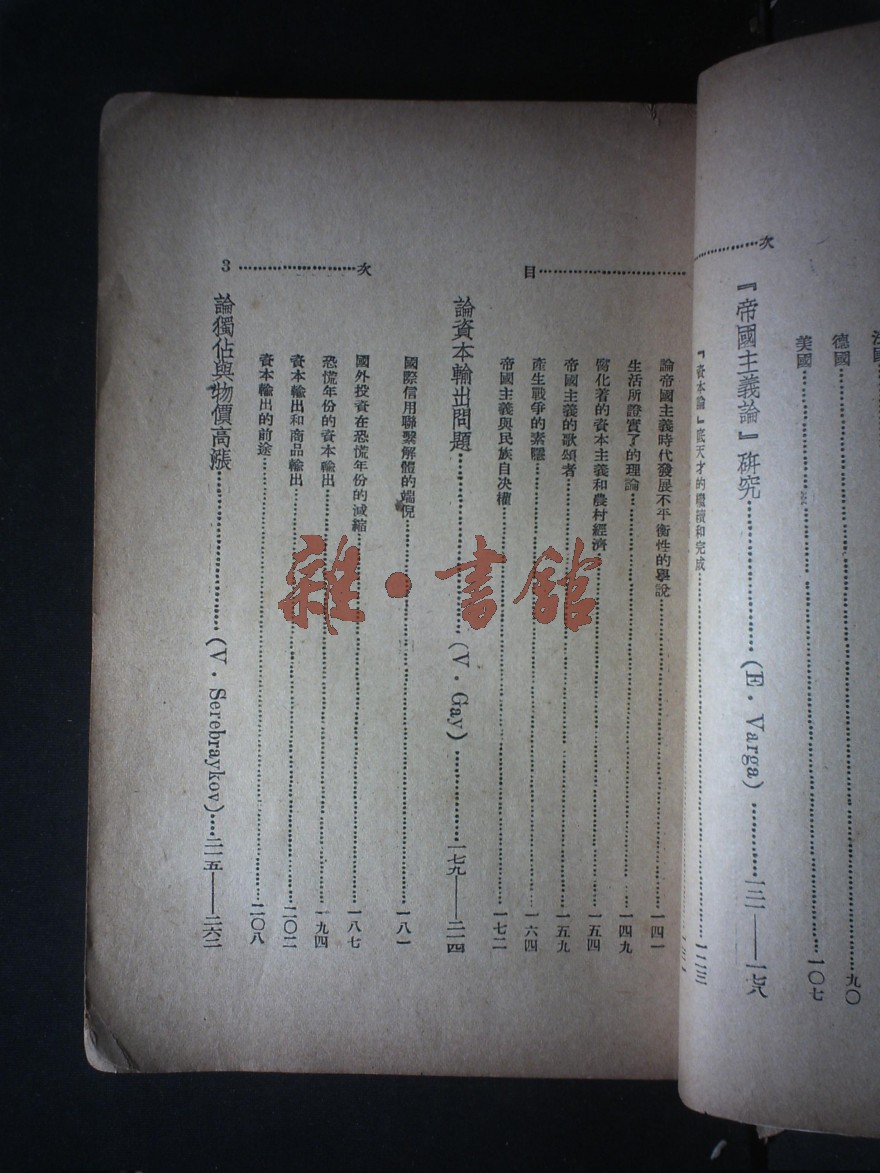 德國……九〇
美國……一〇七
『帝國主義論』研究……(E．Varga)……一二一——一七八
『資本論』底天才的繼續和完成……一二三
次
目……次……3
論帝國主義時代發展不平衡性的學說……一四一
生活所證實了的理論……一四九
腐化著的資本主義和農村經濟……一五四
帝國主義的歌頌者……一五九
產生戰爭的素因……一六四
帝國主義與民族自決權……一七二
論資本輸出問題……(V．Gay)……一七九——二一四
國際信用聯繫解體的端倪……一八一
國外投資在恐慌年份的減縮……一八七
恐慌年份的資本輸出……一九四
資本輸出和商品輸出……二〇二
資本輸出的前途……二〇八
論獨佔與物價高漲……(V．Serebraykov)……二一五——二六二
雜·書館